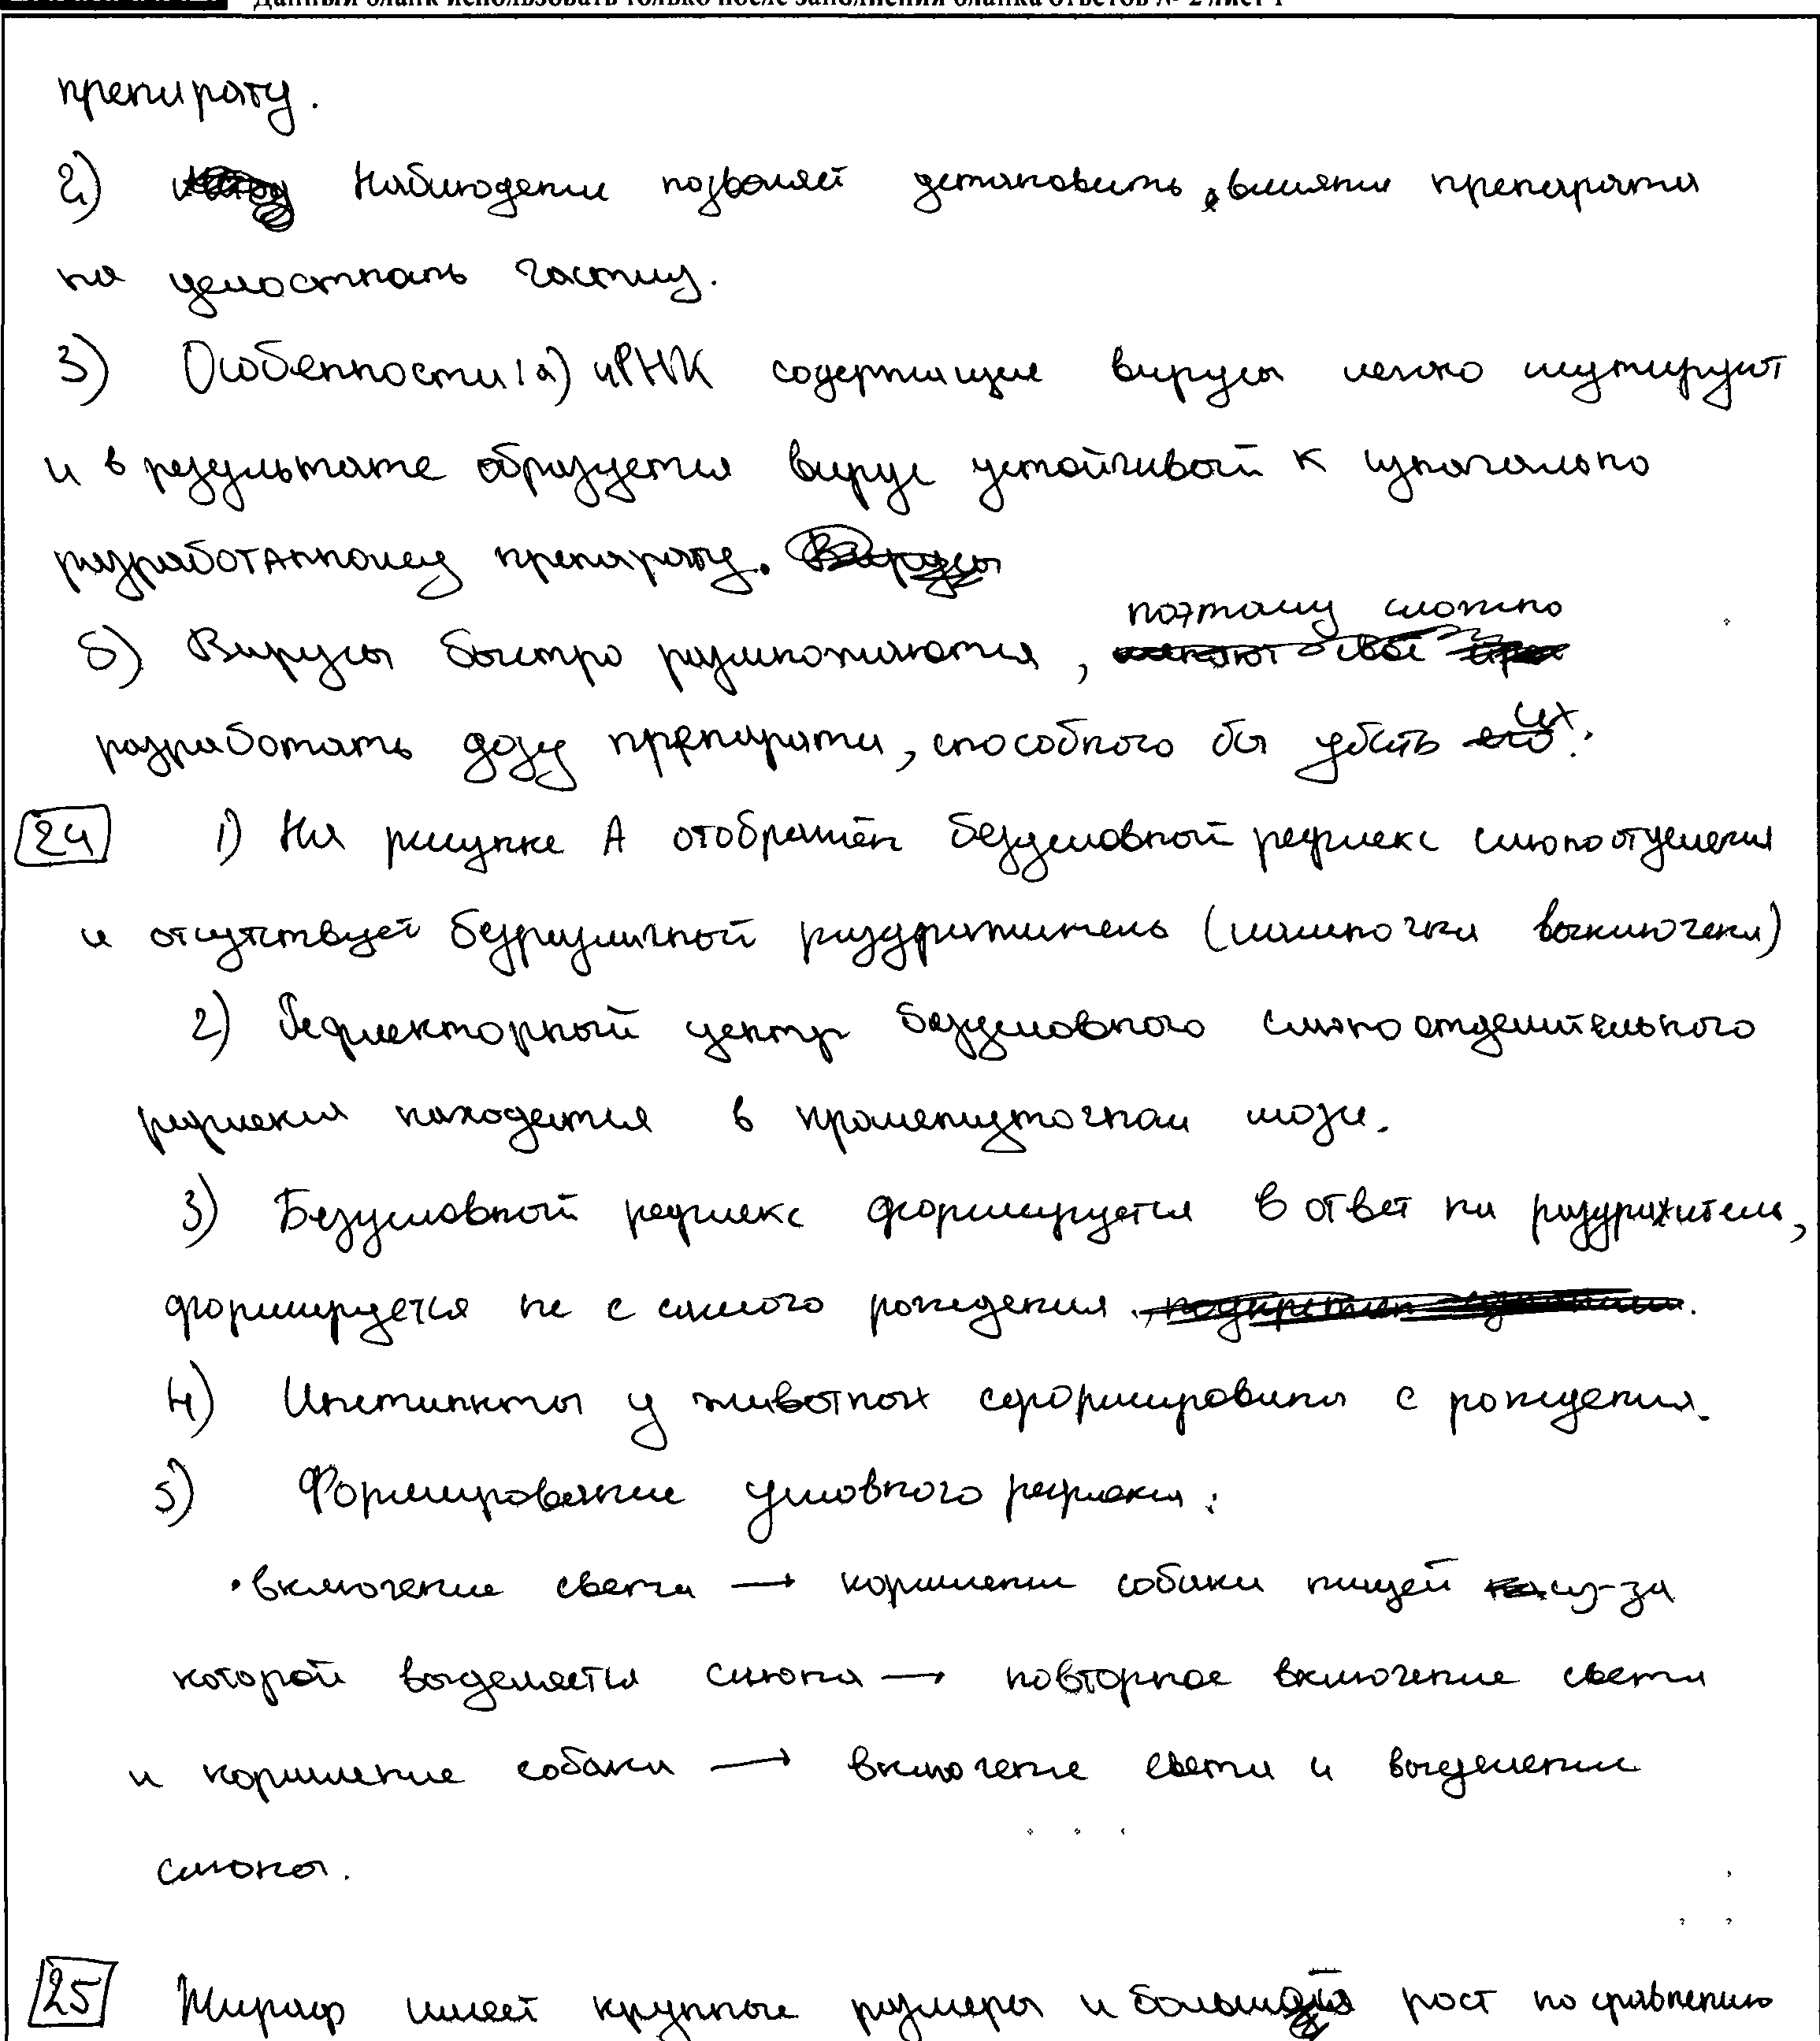 Данный бланк использовать только после заполнения бланка ответов № 2 лист 1
препарату.
2) Наблюдение позволяет установить влияние препарата
на целостность частиц.
3) Особенности: а) иРНК содержащие вирусы легко мутируют
и в результате образуется вирус устойчивый к изначально
разработанному препарату.
поэтому сложно
б) Вирусы быстро размножаются,
их
разработать дозу препарата, способного бы убить его.
24 1) На рисунке А отображён безусловный рефлекс слюноотделения
и отсутствует безразличный раздражитель (лампочка выключена)
2) Рефлекторный центр безусловного слюноотделительного
рефлекса находится в промежуточном мозге.
3) Безусловный рефлекс формируется в ответ на раздражитель,
формируется не с самого рождения.
4) Инстинкты у животных сформированы с рождения.
5) Формирование условного рефлекса:
• включение света → кормление собаки пищей из-за
которой выделяется слюна → повторное включение света
и кормление собаки → включение света и выделение
слюны.
25 Жираф имеет крупные размеры и большой рост по сравнению